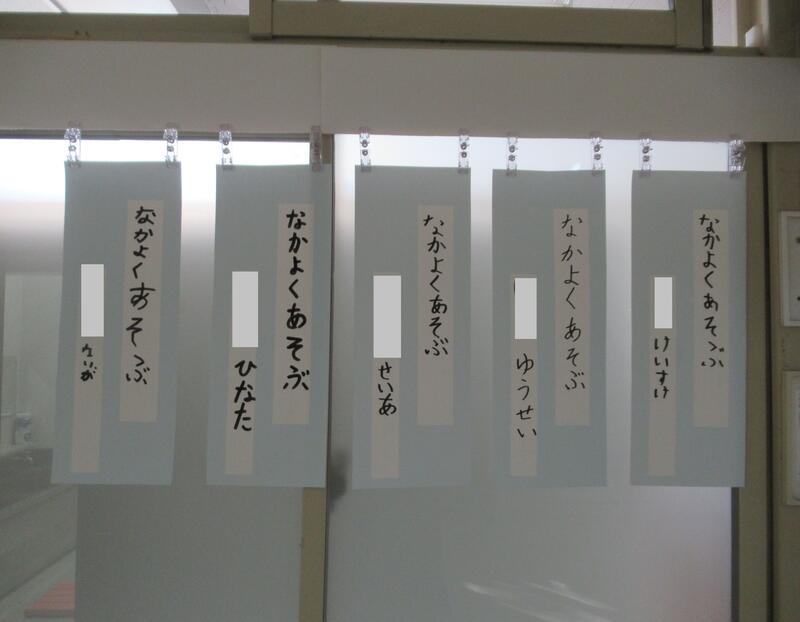 なかよくあそぶ
けいすけ
なかよくあそぶ
ゆうせい
なかよくあそぶ
せいあ
なかよくあそぶ
ひなた
なかよくあそぶ